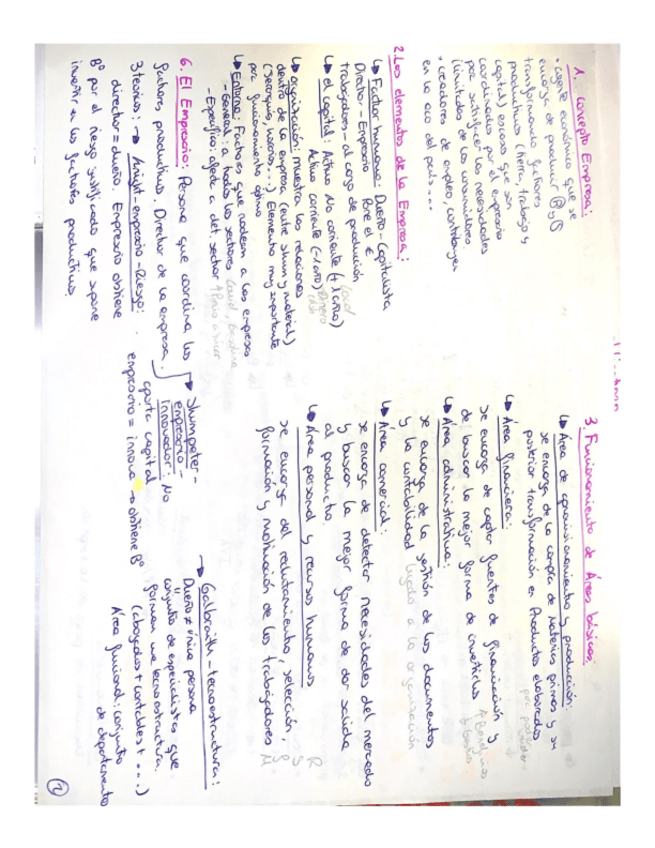 1. Concepto Empresa:
• agente económico que se
encarga de producir B y S
transformando factores
productivos (tierra, trabajo y
capital) escasos que son
coordinados por el empresario
por satisfacer las necesidades
ilimitadas de los consumidores.
• creadores de empleo, contribuyen
en la eco del país...
2. Los elementos de la Empresa:
↳ Factor humano: Dueño - Capitalista
Director - Empresario Pone el €
trabajadores - al cargo de producción
↳ el capital: Activo No corriente (+1 año) local
Activo corriente (-1 año) Dinero
↳ organización: muestra las relaciones
dentro de la empresa (entre humn y material)
(Jerarquías, horarios...) Elemento muy importante
por funcionamiento óptimo
↳ Entorno: Factores que rodean a las empresas
- General: a todos los sectores
- Específico: afecta a det sector
6. El Empresario: Persona que coordina los
factores productivos. Director de la empresa.
3 teorías: → Knight - empresario - Riesgo:
director = dueño. Empresario obtiene
Bº por el riesgo justificado que supone
invertir en los factores productivos.
→ Shumpeter -
empresario -
Innovador: No
aporta capital
empresario = innova → obtiene Bº
→ Galbraith - tecnoestructura:
Dueño ≠ única persona
conjunto de especialistas que
forman una tecnoestructura.
(abogados + contables + ...)
Área funcional: conjunto
de departamentos
3. Funcionamiento de Áreas básicas:
↳ Área de aprovisionamiento y producción:
se encarga de la compra de materias primas y su
posterior transformación en Productos elaborados
↳ Área financiera:
se encarga de captar fuentes de financiación y
de buscar la mejor forma de invertirlas
↳ Área administrativa:
se encarga de la gestión de los documentos
y la contabilidad ligado a la organización
↳ Área comercial:
se encarga de detectar necesidades del mercado
y buscar la mejor forma de dar salida
al producto.
↳ Área personal y recursos humanos
se encarga del reclutamiento, selección, R S
formación y motivación de los trabajadores F M
2